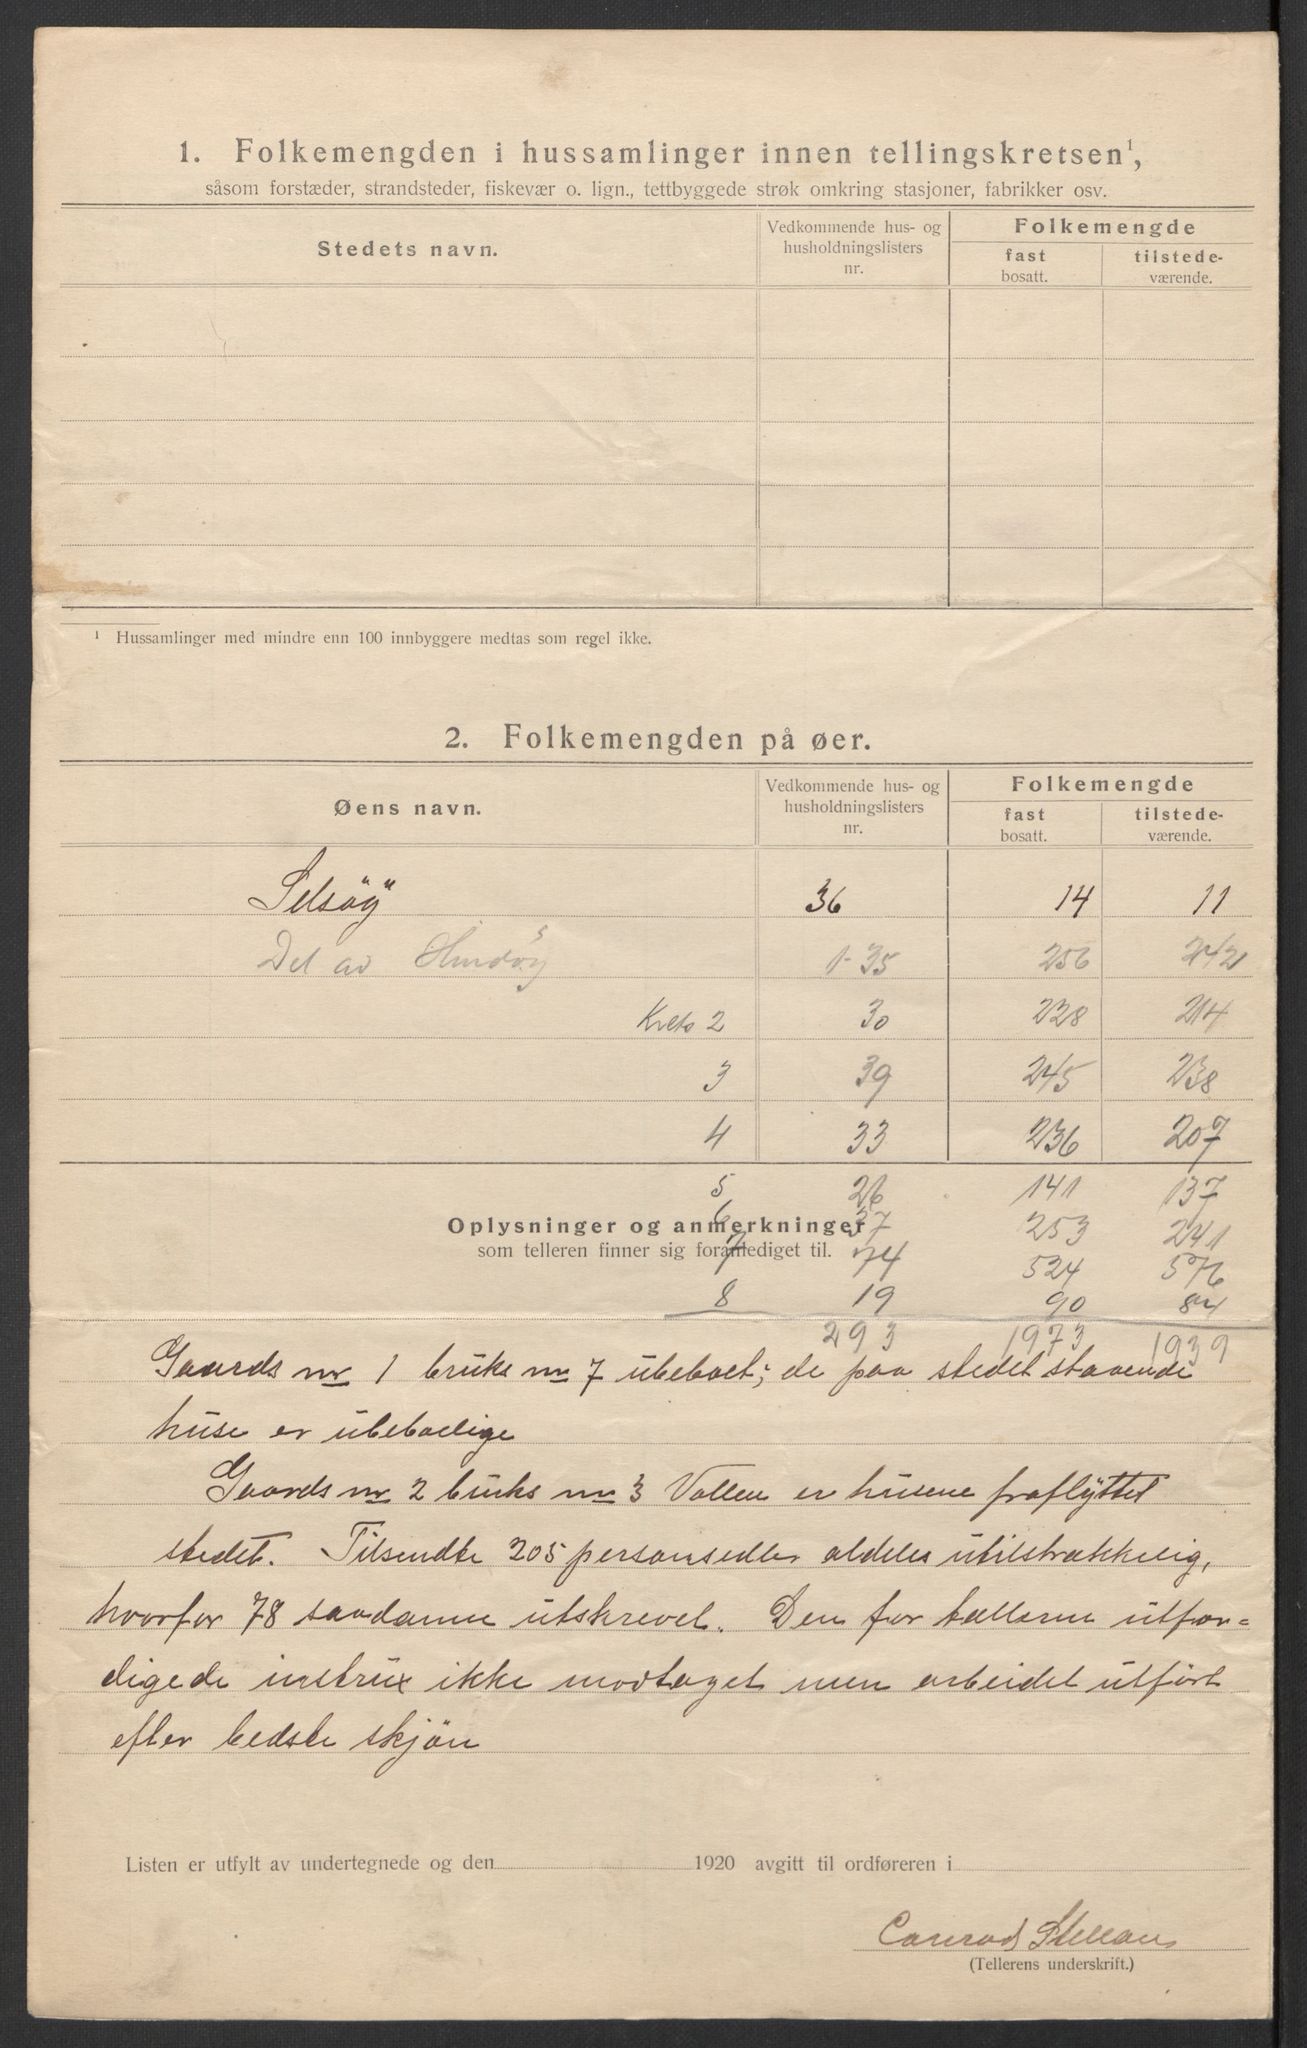 1. Folkemengden i hussamlinger innen tellingskretsen¹,
såsom forstæder, strandsteder, fiskevær o. lign., tettbyggede strøk omkring stasjoner, fabrikker osv.
Stedets navn. Vedkommende hus- og husholdningslisters nr. Folkemengde
fast bosatt. tilstede-værende.
¹ Hussamlinger med mindre enn 100 innbyggere medtas som regel ikke.
2. Folkemengden på øer.
Øens navn. Vedkommende hus- og husholdningslisters nr. Folkemengde
fast bosatt. tilstede-værende.
Selsöy 36 14 11
Del av Hindöy 1-35 256 242
Krets 2 30 228 214
3 39 245 238
4 33 236 207
5 26 141 137
6 37 253 241
Oplysninger og anmerkninger
som telleren finner sig foranlediget til.
7 74 524 576
8 19 90 84
293 1973 1939
Gaards nr 1 bruks nr 7 ubeboet; de paa stedet staaende
huse er ubeboelige
Gaards nr 2 bruks nr 3 Vollen er husene fraflyttet
stedet. Tilsendte 205 personsedler aldeles utilstrækkelig,
hvorfor 78 saadanne utskrevet. Den for tællerne utfær=
digede instrux ikke modtaget men arbeidet utfört
efter bedste skjön
Listen er utfylt av undertegnede og den 1920 avgitt til ordføreren i
Conrad
(Tellerens underskrift.)